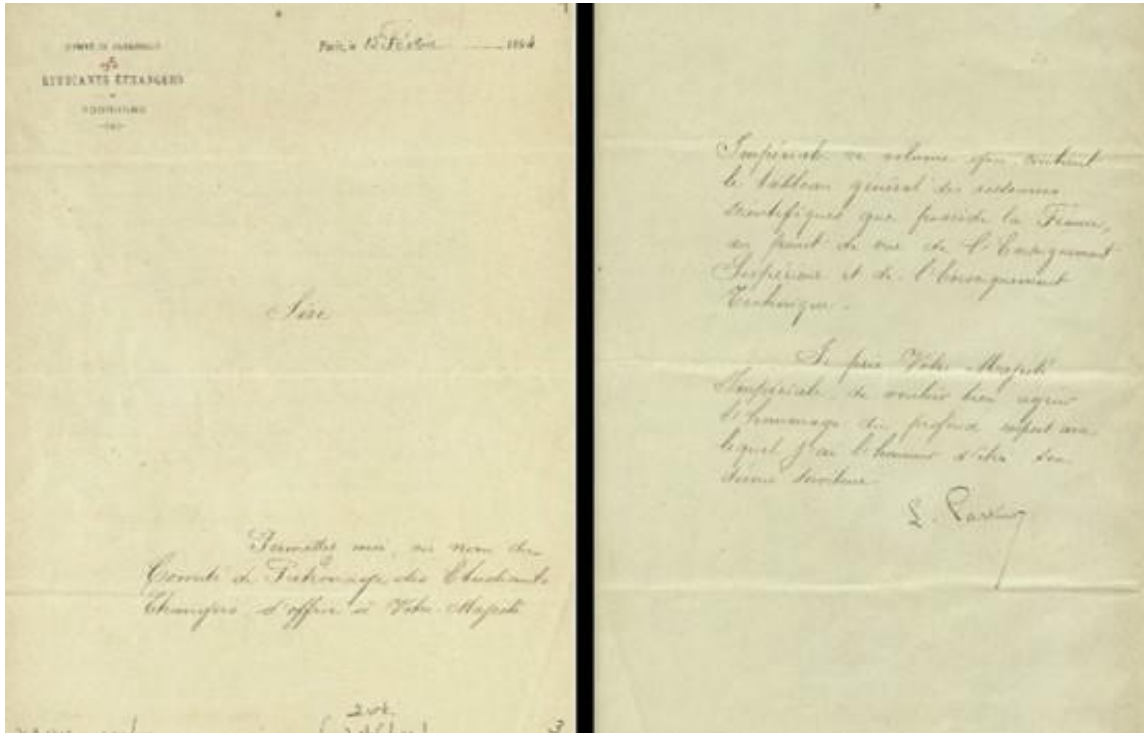 COMITÉ DE PATRONAGE
DES
ÉTUDIANTS ÉTRANGERS
Paris, le 15 Février 1894
Sire
Permettez moi, au nom du
Comité de Patronage des Etudiants
Etrangers, d'offrir à Votre Majesté
Impériale ce volume qui contient
le tableau général des ressources
scientifiques que possède la France,
au point de vue de l'Enseignement
Supérieur et de l'Enseignement
Technique.
Je prie Votre Majesté
Impériale, de vouloir bien agréer
l'hommage du profond respect avec
lequel j'ai l'honneur d'être son
dévoué serviteur
L. Pasteur
3